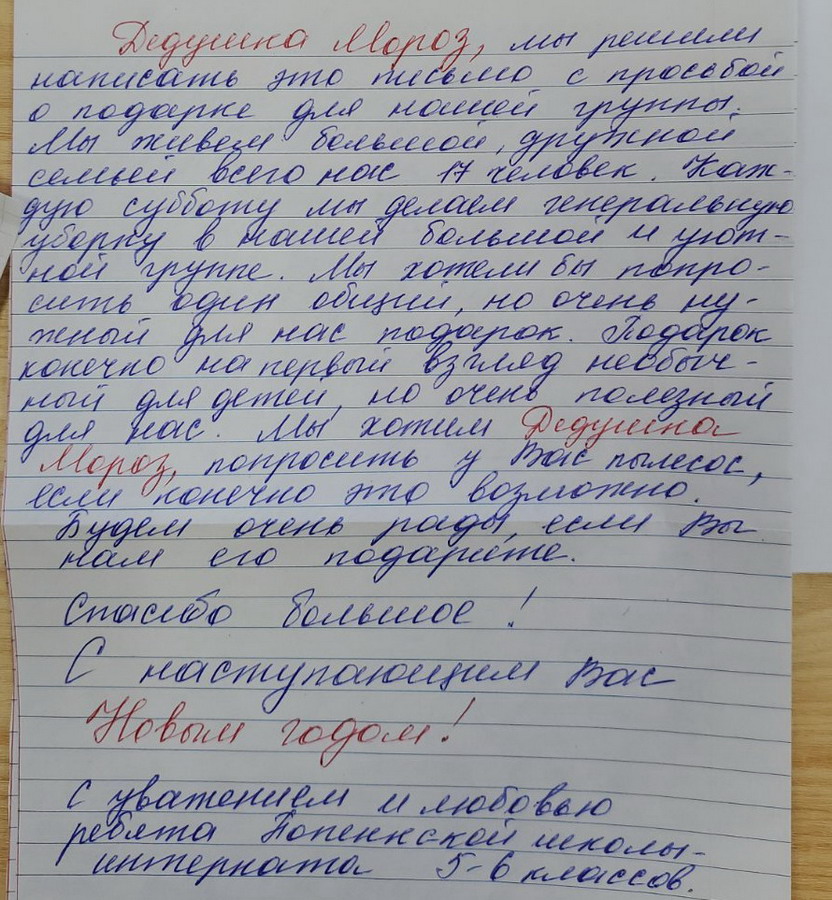 Дедушка Мороз, мы решили
написать это письмо с просьбой
о подарке для нашей группы.
Мы живем большой, дружной
семьей всего нас 17 человек. Каж-
дую субботу мы делаем генеральную
уборку в нашей большой и уют-
ной группе. Мы хотели бы попро-
сить один общий, но очень ну-
жный для нас подарок. Подарок
конечно на первый взгляд необыч-
ный для детей, но очень полезный
для нас. Мы хотим Дедушка
Мороз, попросить у Вас пылесос,
если конечно это возможно.
Будем очень рады, если Вы
нам его подарите.
Спасибо большое!
С наступающим Вас
Новым годом!
С уважением и любовью
ребята Попенкской школы-
интерната 5-6 классов.